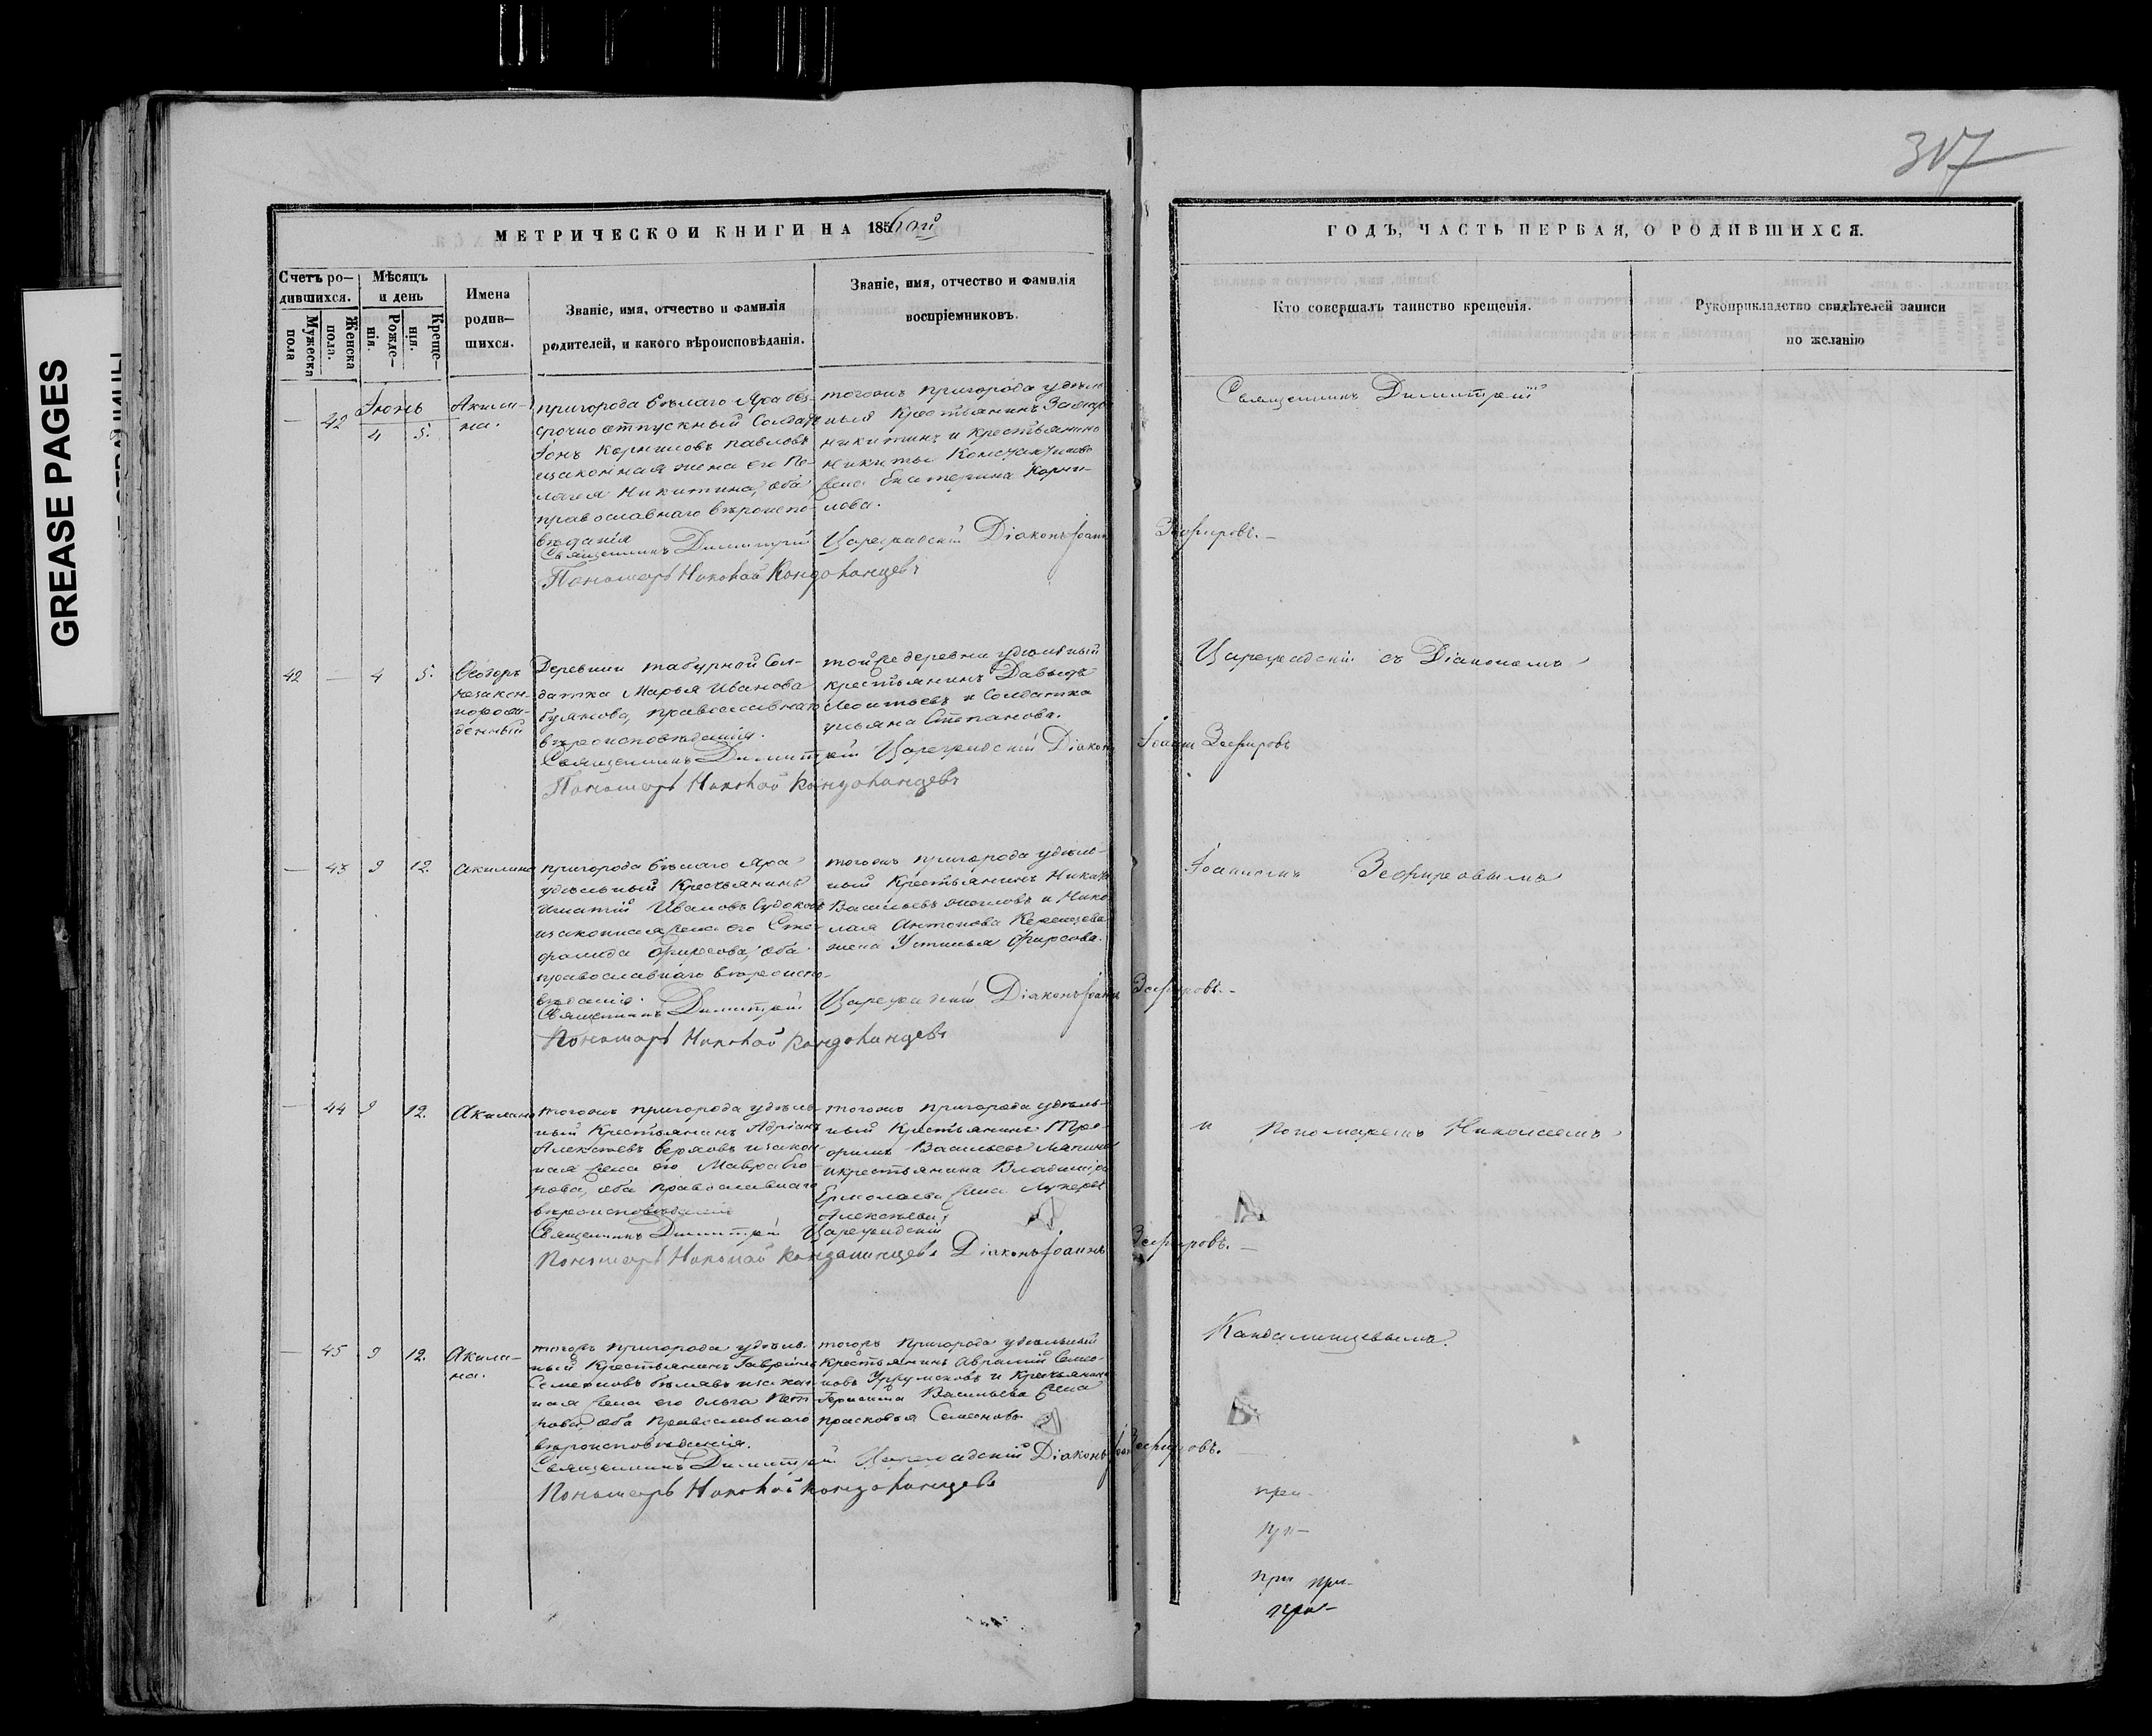 GREASE PAGES
317
МЕТРИЧЕСКОИ КНИГИ НА 1856ой
ГОДЪ, ЧАСТЬ ПЕРВАЯ, О РОДИВШИХСЯ.
Счетъ ро-
дившихся.
Мужеска
пола
Женска
пола.
Мѣсяцъ
и день
Рожде-
нія.
Креще-
нія.
Имена
родив-
шихся.
Званіе, имя, отчество и фамилія
родителей, и какого вѣроисповѣданія.
Званіе, имя, отчество и фамилія
воспріемниковъ.
Кто совершалъ таинство крещенія.
Рукоприкладство свидѣтелей записи
по желанію
—
42
Іюнь
4
5.
Акили-
на.
пригорода бѣлаго Яра без-
срочноотпускный Солдатъ
Іонъ Корниловъ павловъ
изаконная жена его Пе-
лагея Никитина, оба
православнаго вѣроиспо-
вѣданія
тогожъ пригорода удѣль
ный Крестьянинъ
никитинъ и крестьянина
никиты Константинова
жена Екатерина Корни-
лова.
Священникъ Димитрій Цареградскій Діаконъ Іоаннъ Зефировъ.
Пономарь Николай Кандалинцевъ
Священникъ Димитрій
42
—
4
5.
Ѳеодоръ
незакон-
норож-
денный
Деревни табурной Сол-
датка Марья Иванова
православнаго
вѣроисповѣданія.
тойже деревни удѣльный
крестьянинъ Давыдъ
Леонтьевъ и Солдатка
ульяна Степанова.
Священникъ Димитрій Цареградскій Діаконъ Іоаннъ Зефировъ
Пономарь Николай Кандалинцевъ
Цареградскій съ Діакономъ
—
43
9
12.
Акилина
пригорода бѣлаго Яра
удѣльный Крестьянинъ
Игнатій Ивановъ Судоковъ
изаконная жена его Сте-
фанида Фирсова, оба
православнаго вѣроиспо-
вѣданія.
тогожъ пригорода удѣль-
ный Крестьянинъ Никита
Васильевъ и Нико
лая Антонова
жена Устинья Фирсова.
Священникъ Димитрій Цареградскій Діаконъ Іоаннъ Зефировъ.
Пономарь Николай Кандалинцевъ
Іоанномъ Зефировымъ
—
44
9
12.
Акилина
тогожъ пригорода удѣль-
ный Крестьянинъ Адріанъ
Алексѣевъ Серяковъ изакон
ная жена его Мавра Его-
рова, оба православнаго
вѣроисповѣданія
тогожъ пригорода удѣль-
ный Крестьянинъ Тро-
фимъ Васильевъ
икрестьянина Владиміра
Ермолаева жена Лукерья
Алексѣева.
Священникъ Димитрій Цареградскій
Пономарь Николай Кандалинцевъ Діаконъ Іоаннъ Зефировъ.
и Пономаремъ Николаемъ
—
45
9
12.
Акили-
на.
тогожъ пригорода удѣль-
ный Крестьянинъ Гавріилъ
Семеновъ изакон
ная жена его Ольга Пет
рова, оба Православнаго
вѣроисповѣданія.
тогожъ пригорода удѣльный
Крестьянинъ Аврамій Семе-
новъ и Крестьянина
Васильева жена
прасковья Семенова
Священникъ Димитрій Цареградскій Діаконъ Іоаннъ Зефировъ.
Пономарь Николай Кандалинцевъ
Кандалинцевымъ.
при-
при при-